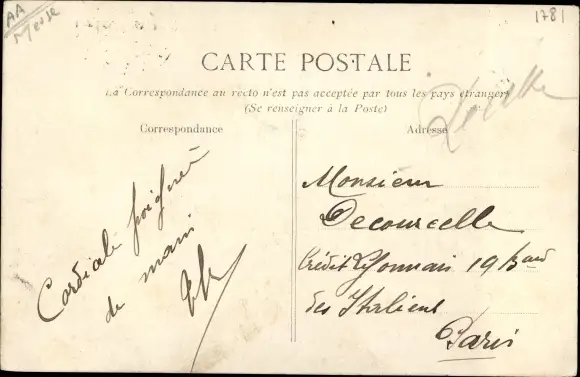 AA
Meuse
1781
CARTE POSTALE
La Correspondance au recto n'est pas acceptée par tous les pays étrangers
(Se renseigner à la Poste)
Correspondance
Adresse
Cordiale poignée
de main
Monsieur
Decourcelle
Crédit Lyonnais 19 Bard
des Italiens
Paris